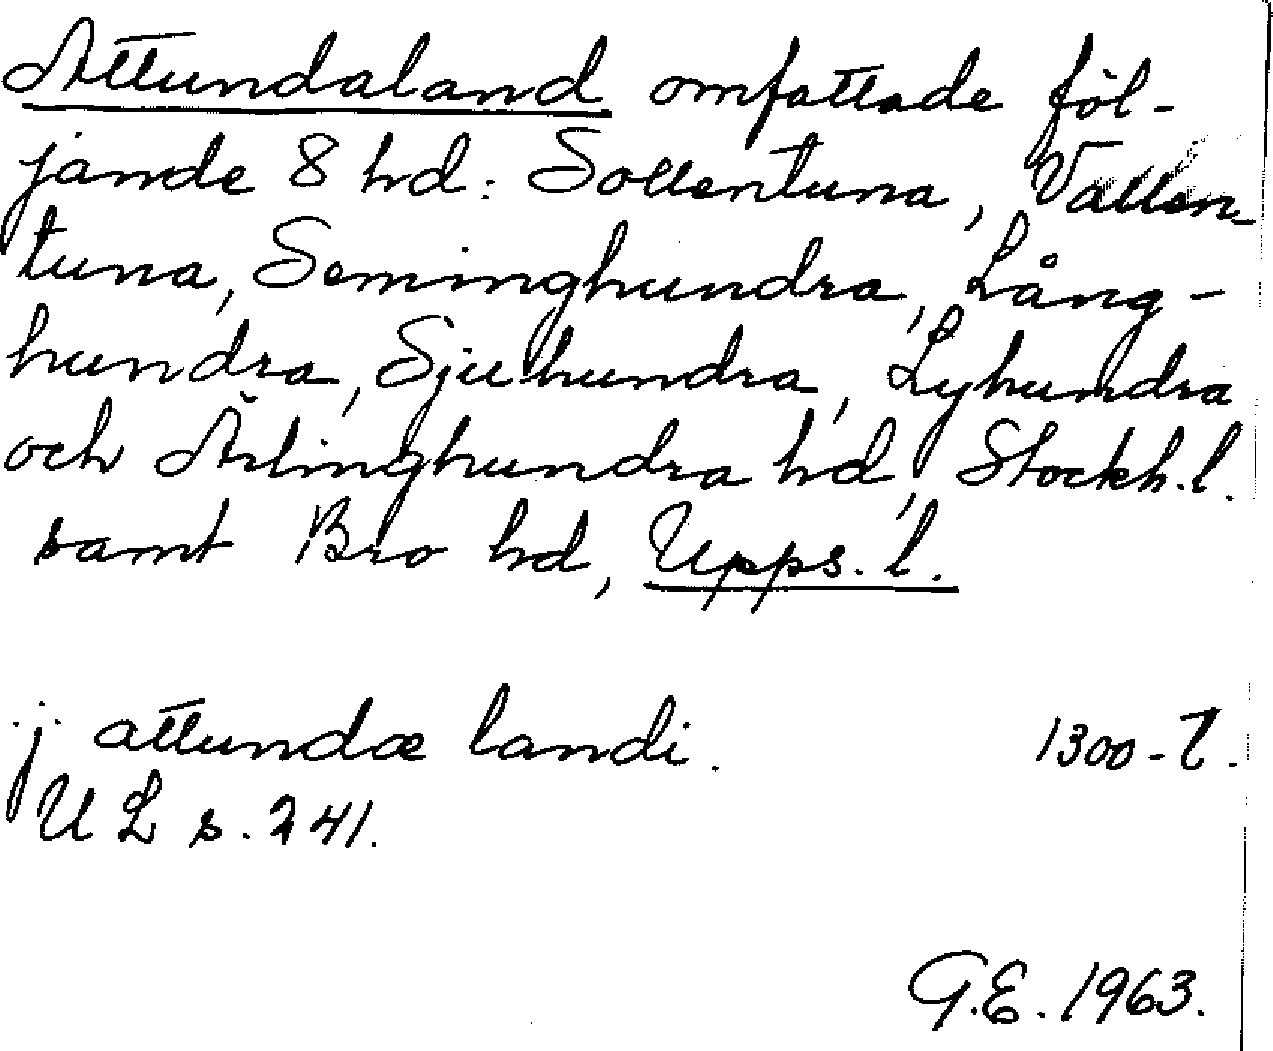 Attundaland omfattade föl-
jande 8 hd: Sollentuna, Vallen-
tuna, Seminghundra, Lång-
hundra, Sjuhundra, Lyhundra
och Ärlinghundra hd, Stockh. l.
samt Bro hd, Upps. l.
j attundæ landi. 1300-t.
UL s. 241.
G.E. 1963.